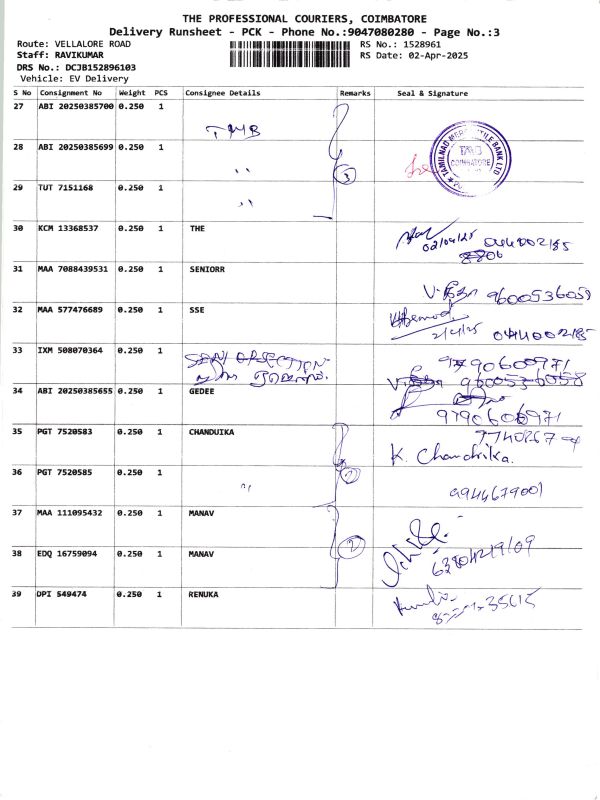 THE PROFESSIONAL COURIERS, COIMBATORE
Delivery Runsheet - PCK - Phone No.:9047080280 - Page No.:3
Route: VELLALORE ROAD RS No.: 1528961
Staff: RAVIKUMAR RS Date: 02-Apr-2025
DRS No.: DCJB152896103
Vehicle: EV Delivery
S No Consignment No Weight PCS Consignee Details Remarks Seal & Signature
27 ABI 20250385700 0.250 1 TMB
28 ABI 20250385699 0.250 1 ,, 3 TAMILNAD MERCANTILE BANK LTD TMB COIMBATORE
29 TUT 7151168 0.250 1 ,,
30 KCM 13368537 0.250 1 THE 02/04/25
31 MAA 7088439531 0.250 1 SENIORR 9600536059
32 MAA 577476689 0.250 1 SSE 2/4/25
33 IXM 508070364 0.250 1
34 ABI 20250385655 0.250 1 GEDEE
35 PGT 7520583 0.250 1 CHANDUIKA K. Chandrika.
36 PGT 7520585 0.250 1 ,, 9944679001
37 MAA 111095432 0.250 1 MANAV
38 EDQ 16759094 0.250 1 MANAV 2
39 DPI 549474 0.250 1 RENUKA